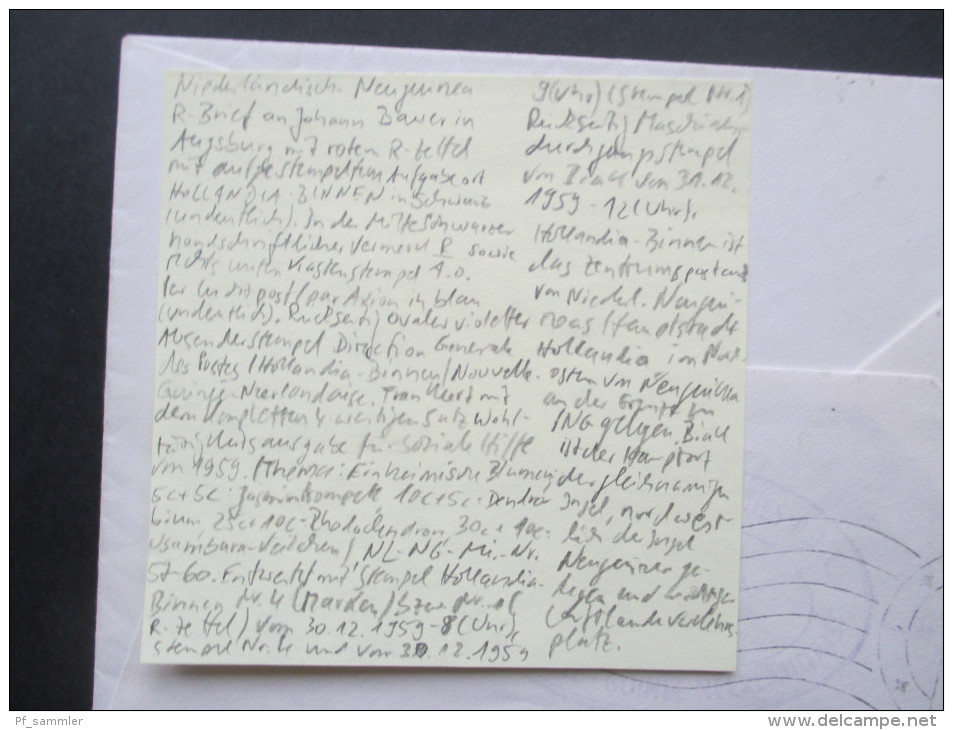 Niederländisch Neuguinea
R-Brief an Johann Bauer in
Augsburg mit rotem R-Zettel
mit aufgestempeltem Aufgabeort
HOLLANDIA-BINNEN in schwarz
(undeutlich). In der Mitte schwarzer
handschriftlicher Vermerk R sowie
rechts unten Kastenstempel A.O.
par Avion in blau
(undeutlich). Rückseitig ovaler violetter
Absenderstempel Direction Generale
des Postes / Hollandia-Binnen / Nouvelle-
Guinee Neerlandaise. Frankiert mit
dem kompletten 4 wertigen Satz Wohl-
tätigkeitsausgabe für soziale Hilfe
von 1959. (Thema: Einheimische Blumen;
5c+5c: 10c+5c: Dendro-
bium 25c+10c-Rhododendron 30c+10c-
Usambara-Veilchen) NL-NG-Mi.-Nr.
57-60. Entwertet mit Stempel Hollandia-
Binnen Nr. 4 (Marken) bzw. Nr. 1 (
R-Zettel) vom 30.12.1959-8 (Uhr),
Stempel Nr. 4 und vom 30.12.1959
9 (Uhr) (Stempel Nr. 1)
Rückseitig Maschinen
durchgangsstempel
von Biak von 31.12.
1959-12 (Uhr).
Hollandia-Binnen ist
das Zentrumspostamt
von Niederl. Neugui-
neas Hauptstadt
Hollandia im Nord-
osten von Neuguinea
an der Grenze zu
ING gelegen. Biak
ist der Hauptort
der gleichnamigen
Insel, nordwest-
lich der Insel
Neuguinea ge-
legen und wichtiger
Luftlandeverkehrs-
platz.
Pf_sammler
www.delcampe.net